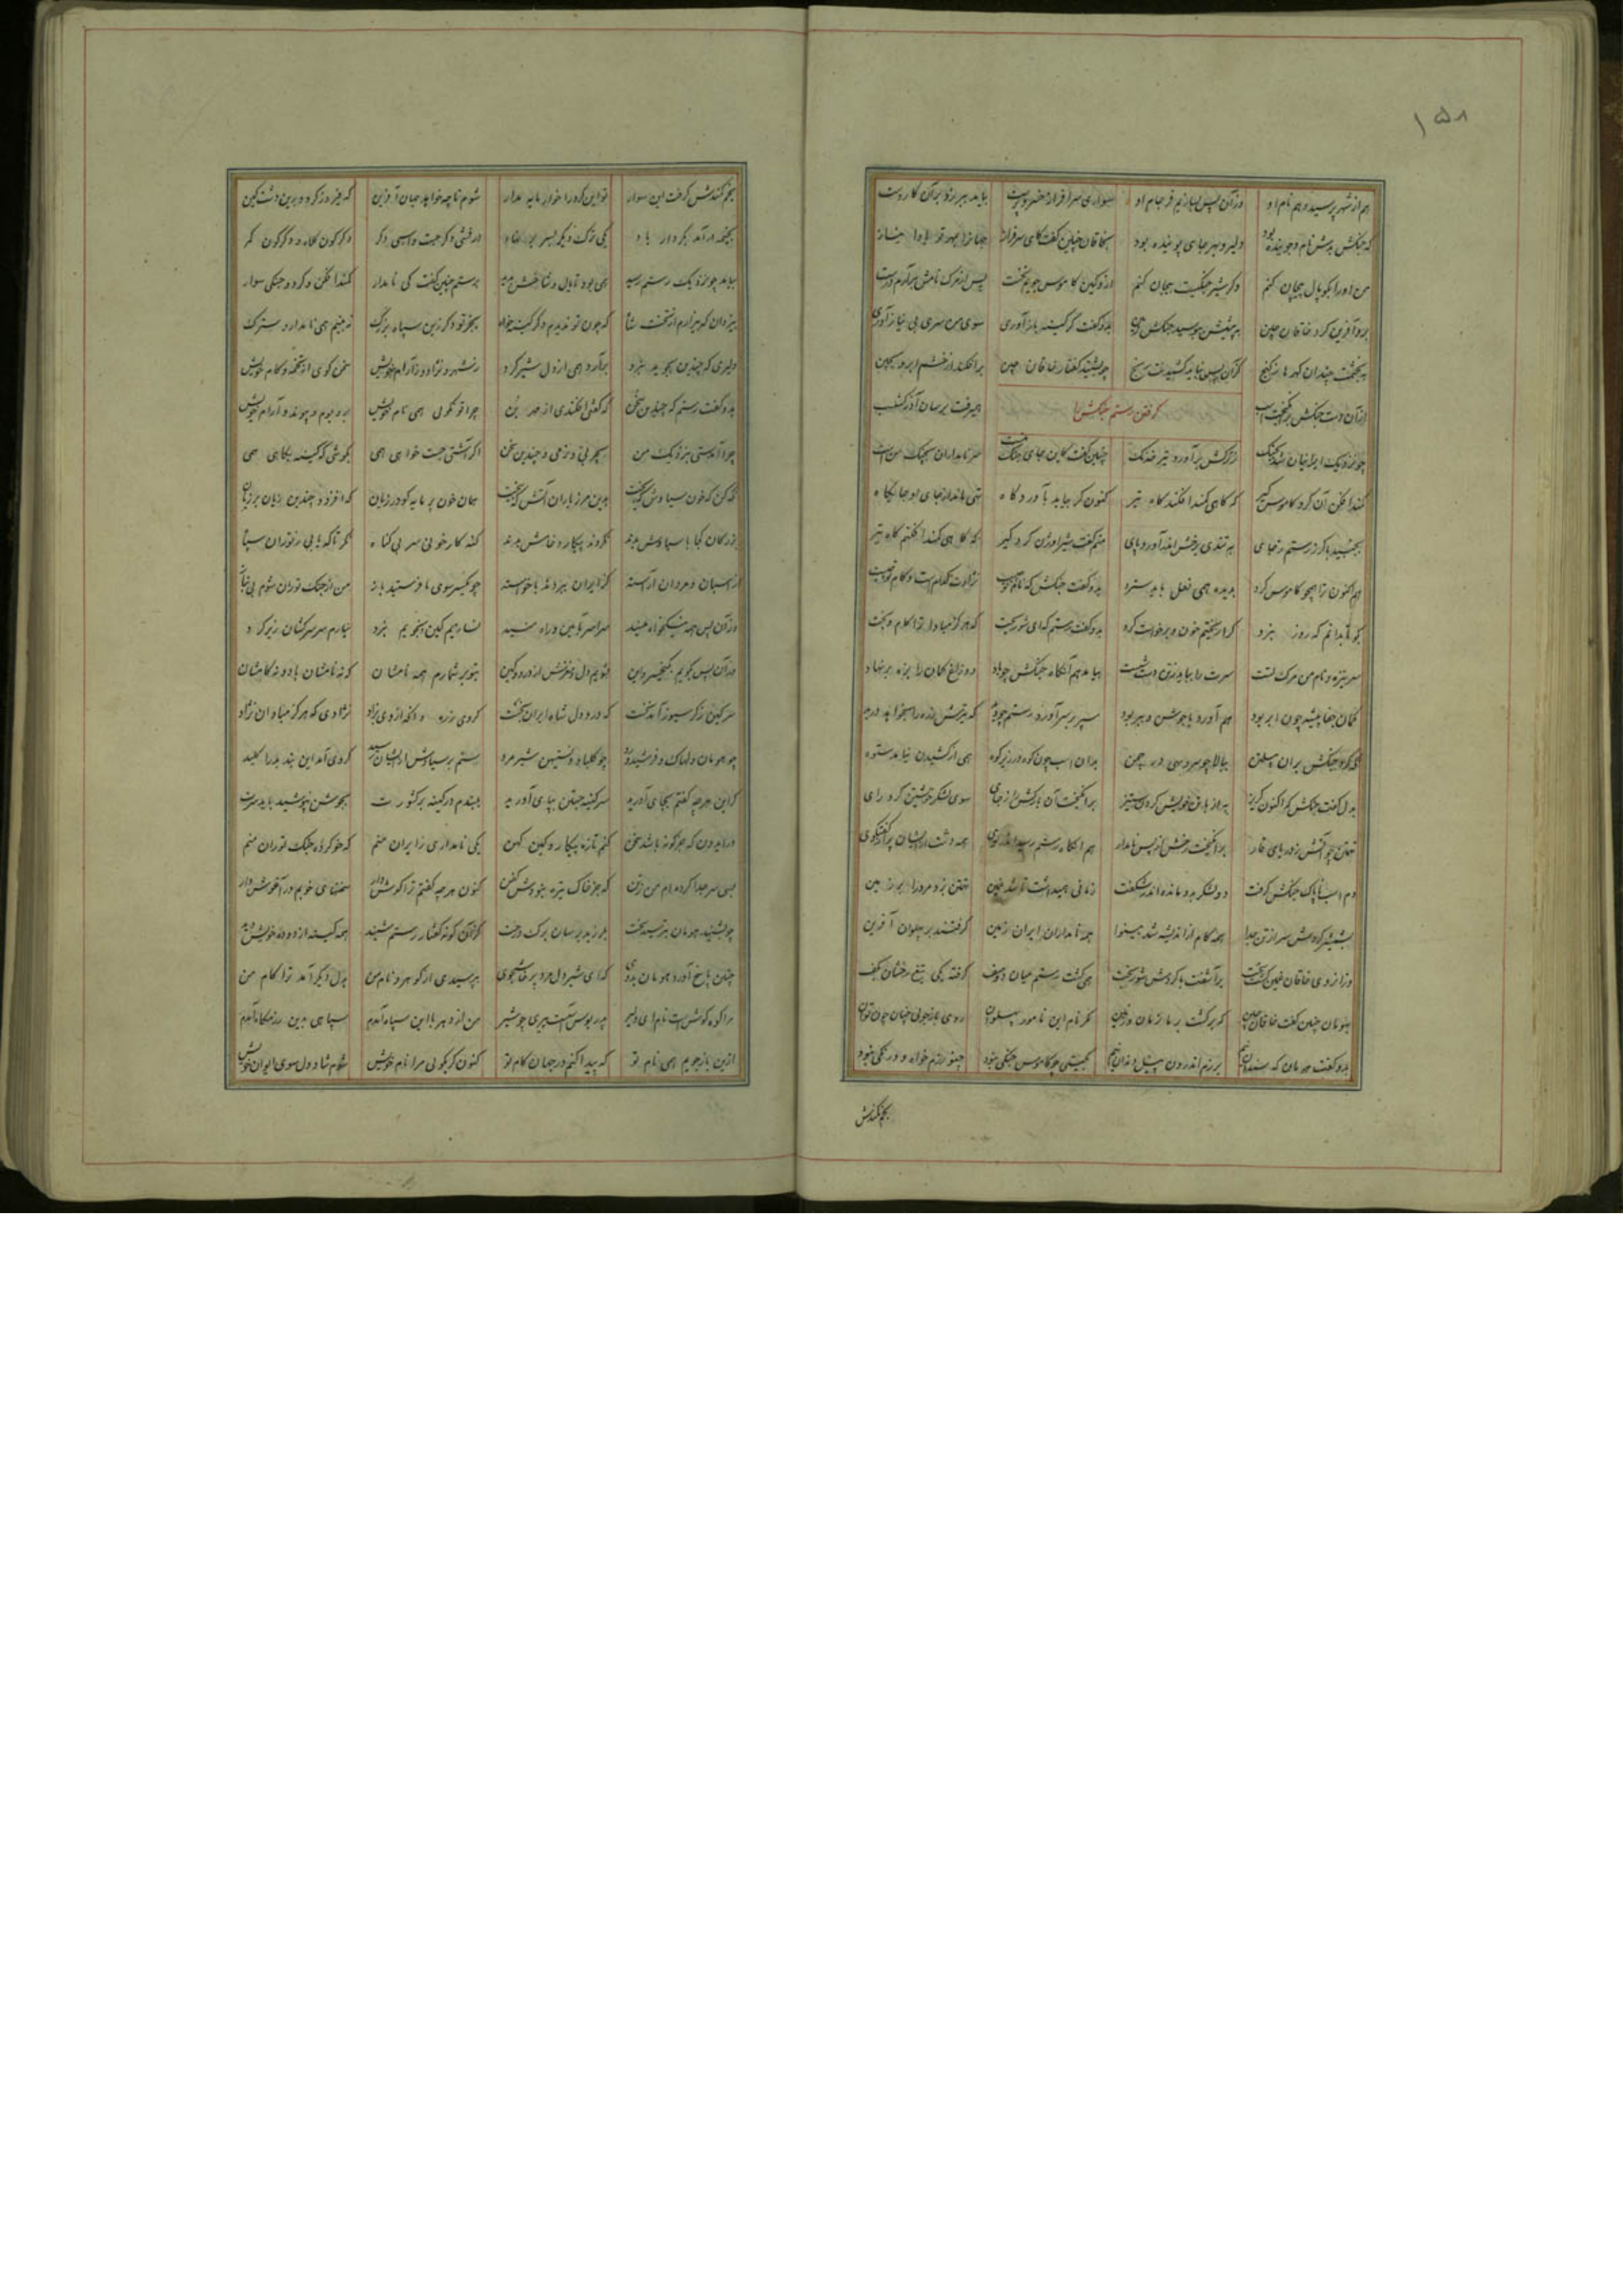 ۱۵۸
هم از شهر پرسید و هم نام او وزآن پس بسازیم فرجام او سواری سرافراز خسروپرست بیامد ببر زد برآن کار دست
که جنگش بدش نام و جوینده بود دلیر و بهر جای پوینده بود بخاقان چنین گفت کای سرفراز جهانرا بمهر تو بادا نیاز
من اورا بکوپال بیجان کنم وگر شیر جنگیست بیجان کنم ازو کین کاموس جویم نخست پس از مرگ نامش برآرم درست
برو آفرین کرد خاقان چین به پیشش ببوسید جنگش زمین بدو گفت گر کینه بازآوری سوی من سری بی نیاز آوری
ببخشمت چندان گهرها ز گنج کزآن پس نباید کشیدنت رنج چو بشنید گفتار خاقان چین برافکند از خشم ابرو بچین
ازآن دشت جنگش برانگیخت اسب همیرفت برسان آذرگشسب
گرفتن رستم جنگش را
چو نزدیک ایرانیان شد بجنگ ز ترکش برآورد تیر خدنگ چنین گفت کاین جای جنگ منست سر نامداران بچنگ من است
کمندافکن آن گرد کاموس گیر که گاهی کمند افکند گاه تیر کنون گر بیاید بآوردگاه تهی ماند از جای او جایگاه
بجنبید با گرز رستم ز جای به تندی برخش اندرآورد پای منم گفت شیراوژن گردگیر که گاهی کمند افکنم گاه تیر
هم اکنون ترا همچو کاموس گرد بدیده همی نعل باید سترد بدو گفت جنگش که نام تو چیست نژادت کدام است و کام تو چیست
بگو تا بدانم که روز نبرد کرا ریختم خون چو برخواست گرد بدو گفت رستم که ای شوربخت که هرگز مبادا ترا کام و بخت
سر نیزه و نام من مرگ تست سرت را بباید ز تن دست شست بیامد هم آنگاه جنگش چو باد دو زاغ کمان را بزه برنهاد
کمان جفاپیشه چون ابر بود هم آورد با جوشن و ببر بود سپر بر سر آورد رستم چو دید که تیرش زره را بخواهد درید
نگه کرد جنگش بران پیلتن ببالا چو سرو سهی در چمن بدان اسب چون کوه در زیر کوه همی از کشیدن نیامد ستوه
بدل گفت جنگش که اکنون گریز به از باتن خویش کردن ستیز برانگیخت آن بارکش را ز جای سوی لشکر خویشتن کرد رای
تهمتن چو آتش ز دریای قار برانگیخت رخش از پس نامدار هم آنگاه رستم رسید اندروی همه دشت از ایشان پر از گفتگوی
دم اسب ناپاک جنگش گرفت دو لشکر بدو مانده اندر شگفت زمانی همیداشت تا شد غمین تهمتن بزد مرورا بر زمین
بشمشیر کردش سر از تن جدا همه کام از اندیشه شد بینوا همه نامداران ایران زمین گرفتند بر پهلوان آفرین
وزان روی خاقان غمین گشت سخت برآشفت با گردش شوربخت همی گشت رستم میان دو صف گرفته یکی تیغ رخشان بکف
بهومان چنین گفت خاقان چین که برگشت بر ما زمان و زمین مگر نام این نامور پهلوان روی بازجوئی چنان چون توان
بدو گفت هومان که سندان نیم برزم اندرون پیل دندان نیم بگیتی چو کاموس جنگی نبود چنو رزمخواه و درنگی نبود
بخم کمندش
بخم کمندش گرفت این سوار تو این گرد را خوار مایه مدار شوم تا چه خواهد جهان آفرین که فیروز گردد برین دشت کین
بخیمه درآمد بکردار باد یکی ترک دیگر بسر بر نهاد درفشی دگر جست و اسبی دگر دگرگون کلاه و دگرگون کمر
بیامد چو نزدیک رستم رسید همی بود تا یال و شاخش بدید برستم چنین گفت کی نامدار کمندافکن و گرد و جنگی سوار
بیزدان که بیزارم از تخت شاه که چون تو ندیدم دگر کینه خواه بجز تو دگر زین سپاه بزرگ نه بینم همی نامدار و سترگ
دلیری که چندین بجوید نبرد برآرد همی از دل شیر گرد ز شهر و نژاد و ز آرام خویش سخن گوی از تخمه و کام خویش
بدو گفت رستم که چندین سخن که گفتی افکندی از مهر بن چرا تو نگوئی همی نام خویش بر و بوم و پیوند و آرام خویش
چرا آمدستی بنزدیک من بچربی و نرمی و چندین سخن اگر آشتی جست خواهی همی بکوشی که کینه بکاهی همی
نگه کن که خون سیاوش که ریخت بدین مرز باران آتش که بیخت همان خون پرمایه گودرزیان که افزود چندین زیان بر زیان
بزرگان کجا با سیاوش بدند نکردند پیکار و خامش بدند گنه کار خونی سر بی گناه نگر تا که یابی ز توران سپاه
ز اسپان و مردان آراسته کز ایران ببردند باخواسته چو یکسر سوی ما فرستید باز من از جنگ توران شوم بی نیاز
وزآن پس همه نیکخواه منید سراسر بآئین و راه منید نسازیم کین نجویم نبرد نیارم سر سرکشان زیر گرد
وزآن پس بگویم بکیخسرو این بشویم دل و مغزش از درد و کین بتو برشمارم همه نامشان که نه نامشان بادو نه کامشان
سر کین ز گرسیوز آمد نخست که درد دل شاه ایران بجست گروی زره و آنکه ازوی بزاد نژادی که هرگز مباد آن نژاد
چو هومان و لهاک و فرشیدورد چو کلباد و نستیهن شیرمرد گر این هرچه گفتم بجای آورید سر کینه جستن بپای آورید
ببندم در کینه بر کشورت بجوشن نپوشید باید سرت ورایدون که جز گونه باشد سخن کنم تازه پیکار و کین کهن
یکی نامداری ز ایران منم که خو کرده جنگ توران منم بسی سر جدا کرده ام من ز تن که جز خاک تیره نبودش کفن
کنون هرچه گفتم ترا گوش دار سخنهای خوبم در آغوش دار چو بشنید هومان بترسید سخت بلرزید برسان برگ درخت
کزآن گونه گفتار رستم شنید همه کینه از دوده خویش دید چنان پاسخ آورد هومان بدوی که ای شیردل مرد پرخاشجوی
بپرسیدی از گوهر و نام من بدل دیگر آمد ترا کام من مرا کوه گوش است نام ای دلیر پدر بوسپاس است مردی چو شیر
من از دهر با این سپاه آمدم سپاهی بدین رزمگاه آمدم ازین بازجویم همی نام تو که پیدا کنم در جهان کام تو
کنون گر بگوئی مرا نام خویش شوم شاد دل سوی ایوان خویش